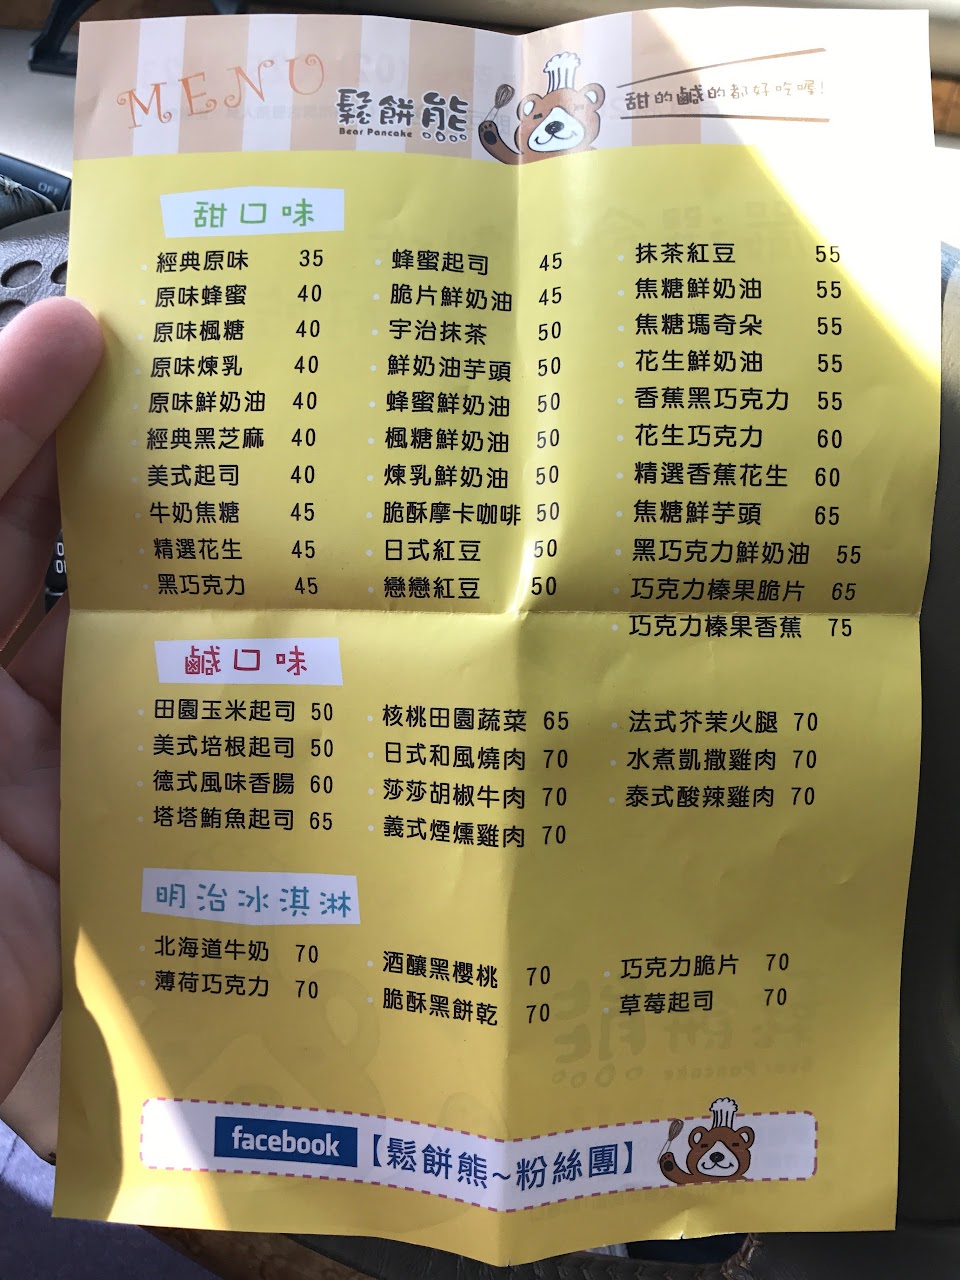 MENU
鬆餅熊
Bear Pancake
甜的鹹的都好吃喔!
甜口味
經典原味 35
原味蜂蜜 40
原味楓糖 40
原味煉乳 40
原味鮮奶油 40
經典黑芝麻 40
美式起司 40
牛奶焦糖 45
精選花生 45
黑巧克力 45
蜂蜜起司 45
脆片鮮奶油 45
宇治抹茶 50
鮮奶油芋頭 50
蜂蜜鮮奶油 50
楓糖鮮奶油 50
煉乳鮮奶油 50
脆酥摩卡咖啡 50
日式紅豆 50
戀戀紅豆 50
抹茶紅豆 55
焦糖鮮奶油 55
焦糖瑪奇朵 55
花生鮮奶油 55
香蕉黑巧克力 55
花生巧克力 60
精選香蕉花生 60
焦糖鮮芋頭 65
黑巧克力鮮奶油 55
巧克力榛果脆片 65
巧克力榛果香蕉 75
鹹口味
田園玉米起司 50
美式培根起司 50
德式風味香腸 60
塔塔鮪魚起司 65
核桃田園蔬菜 65
日式和風燒肉 70
莎莎胡椒牛肉 70
義式煙燻雞肉 70
法式芥茉火腿 70
水煮凱撒雞肉 70
泰式酸辣雞肉 70
明治冰淇淋
北海道牛奶 70
薄荷巧克力 70
酒釀黑櫻桃 70
脆酥黑餅乾 70
巧克力脆片 70
草莓起司 70
facebook【鬆餅熊~粉絲團】
OFF